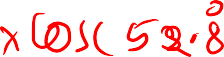 x cos( 52.8°